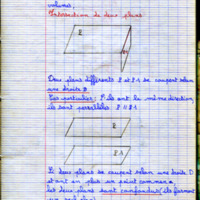 volume,
Intersection de deux plans
P
Deux plans différents P et P1 se coupent selon
une droite D
Cas particulier : S'ils ont la même direction,
ils sont parallèles : P // P1
P
P1
Si deux plans se coupent selon une droite D
et ont en plus un point commun
les deux plans sont confondus (ils forment